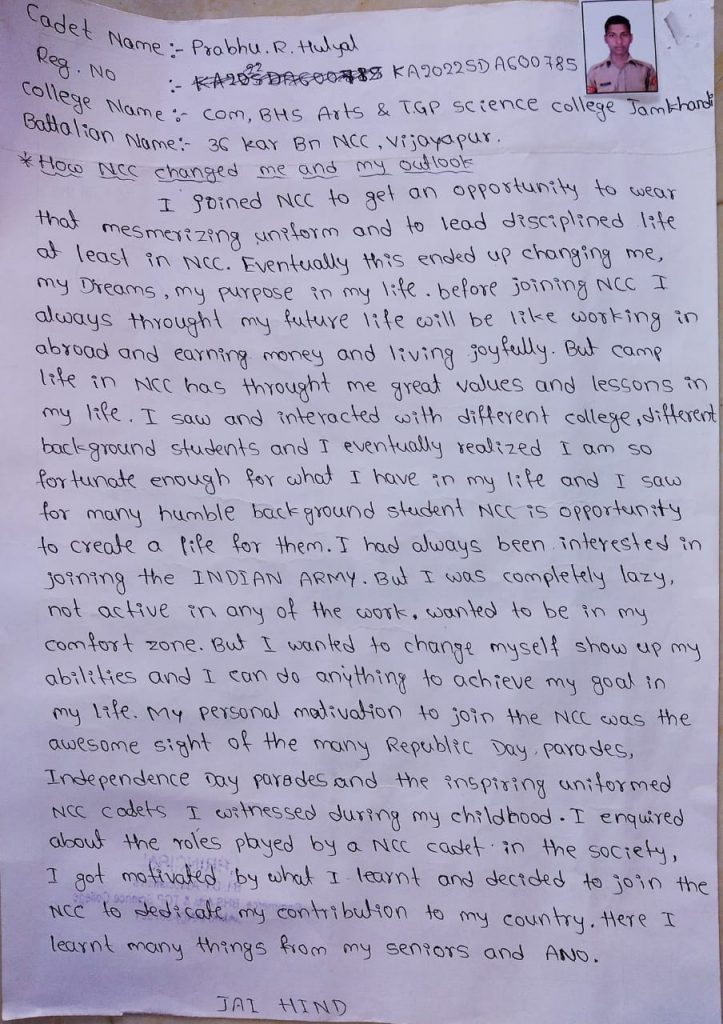 Cadet Name :- Prabhu. R. Hulyal
Reg. No :- KA2022SDA600785
College Name :- Com, BHS Arts & TGP science college Jamkhandi
Battalion Name:- 36 Kar Bn NCC, Vijayapur.
* How NCC changed me and my outlook
I joined NCC to get an opportunity to wear
that mesmerizing uniform and to lead disciplined life
at least in NCC. Eventually this ended up changing me,
my Dreams, my purpose in my life. before joining NCC I
always throught my future life will be like working in
abroad and earning money and living joyfully. But camp
life in NCC has throught me great values and lessons in
my life. I saw and interacted with different college, different
background students and I eventually realized I am so
fortunate enough for what I have in my life and I saw
for many humble background student NCC is opportunity
to create a life for them. I had always been interested in
joining the INDIAN ARMY. But I was completely lazy,
not active in any of the work, wanted to be in my
comfort zone. But I wanted to change myself show up my
abilities and I can do anything to achieve my goal in
my life. My personal motivation to join the NCC was the
awesome sight of the many Republic Day parades,
Independence Day parades and the inspiring uniformed
NCC cadets I witnessed during my childhood. I enquired
about the roles played by a NCC cadet in the society,
I got motivated by what I learnt and decided to join the
NCC to dedicate my contribution to my country. Here I
learnt many things from my seniors and ANO.
JAI HIND